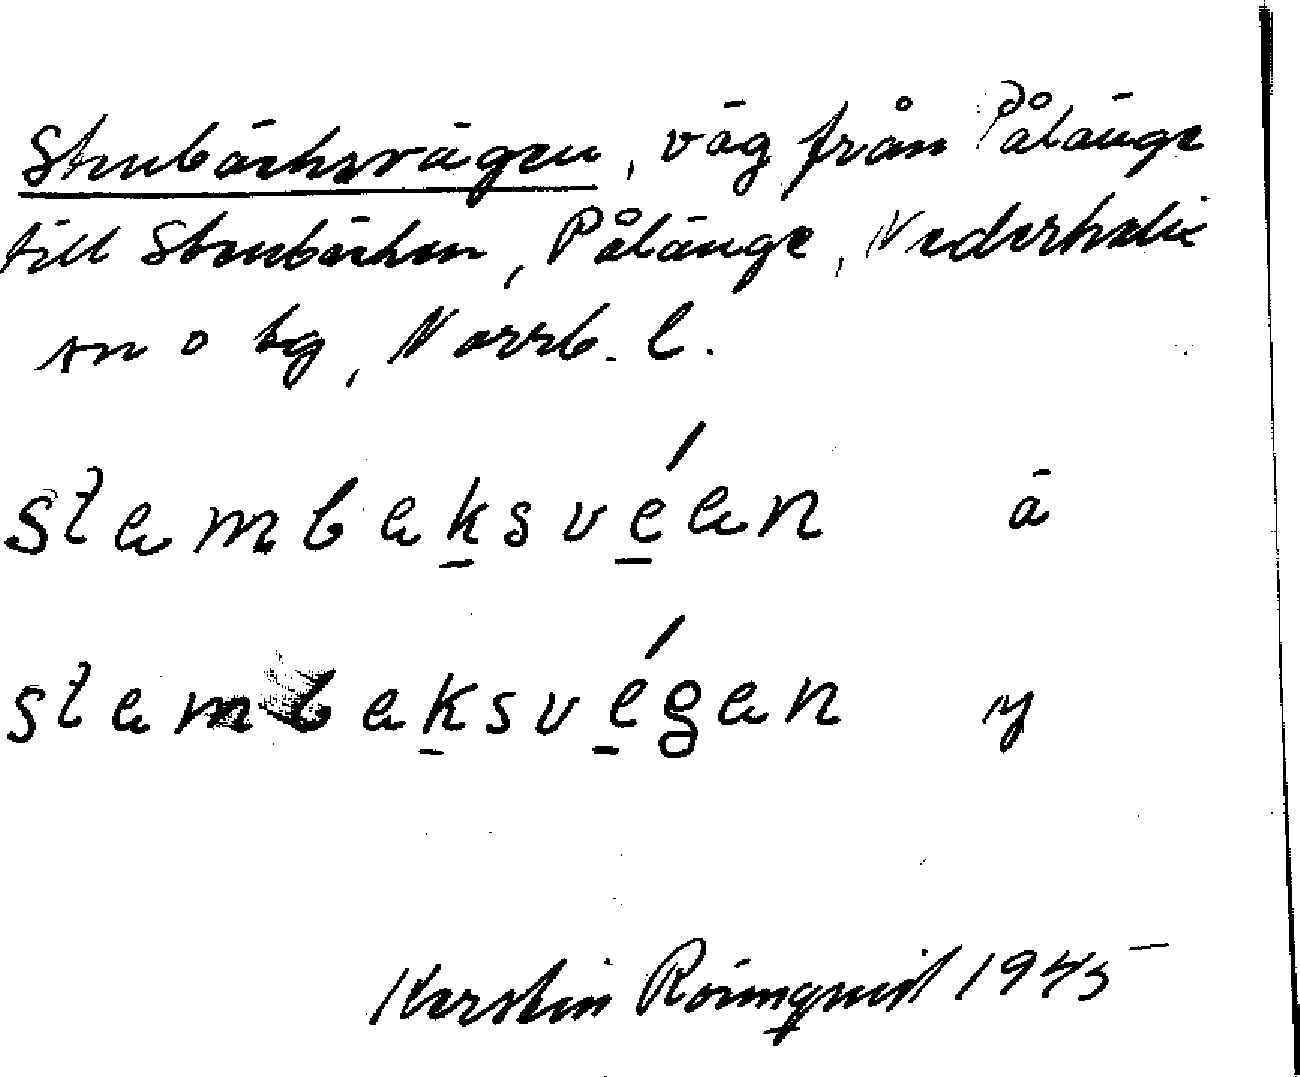 Stenbäcksvägen, väg från Pålänge
till Stenbäcken, Pålänge, Nederkalix
sn o tg, Norrb. l.
stembeksvéen ä
stembeksvégen y
Kerstin Rönnqvist 1945